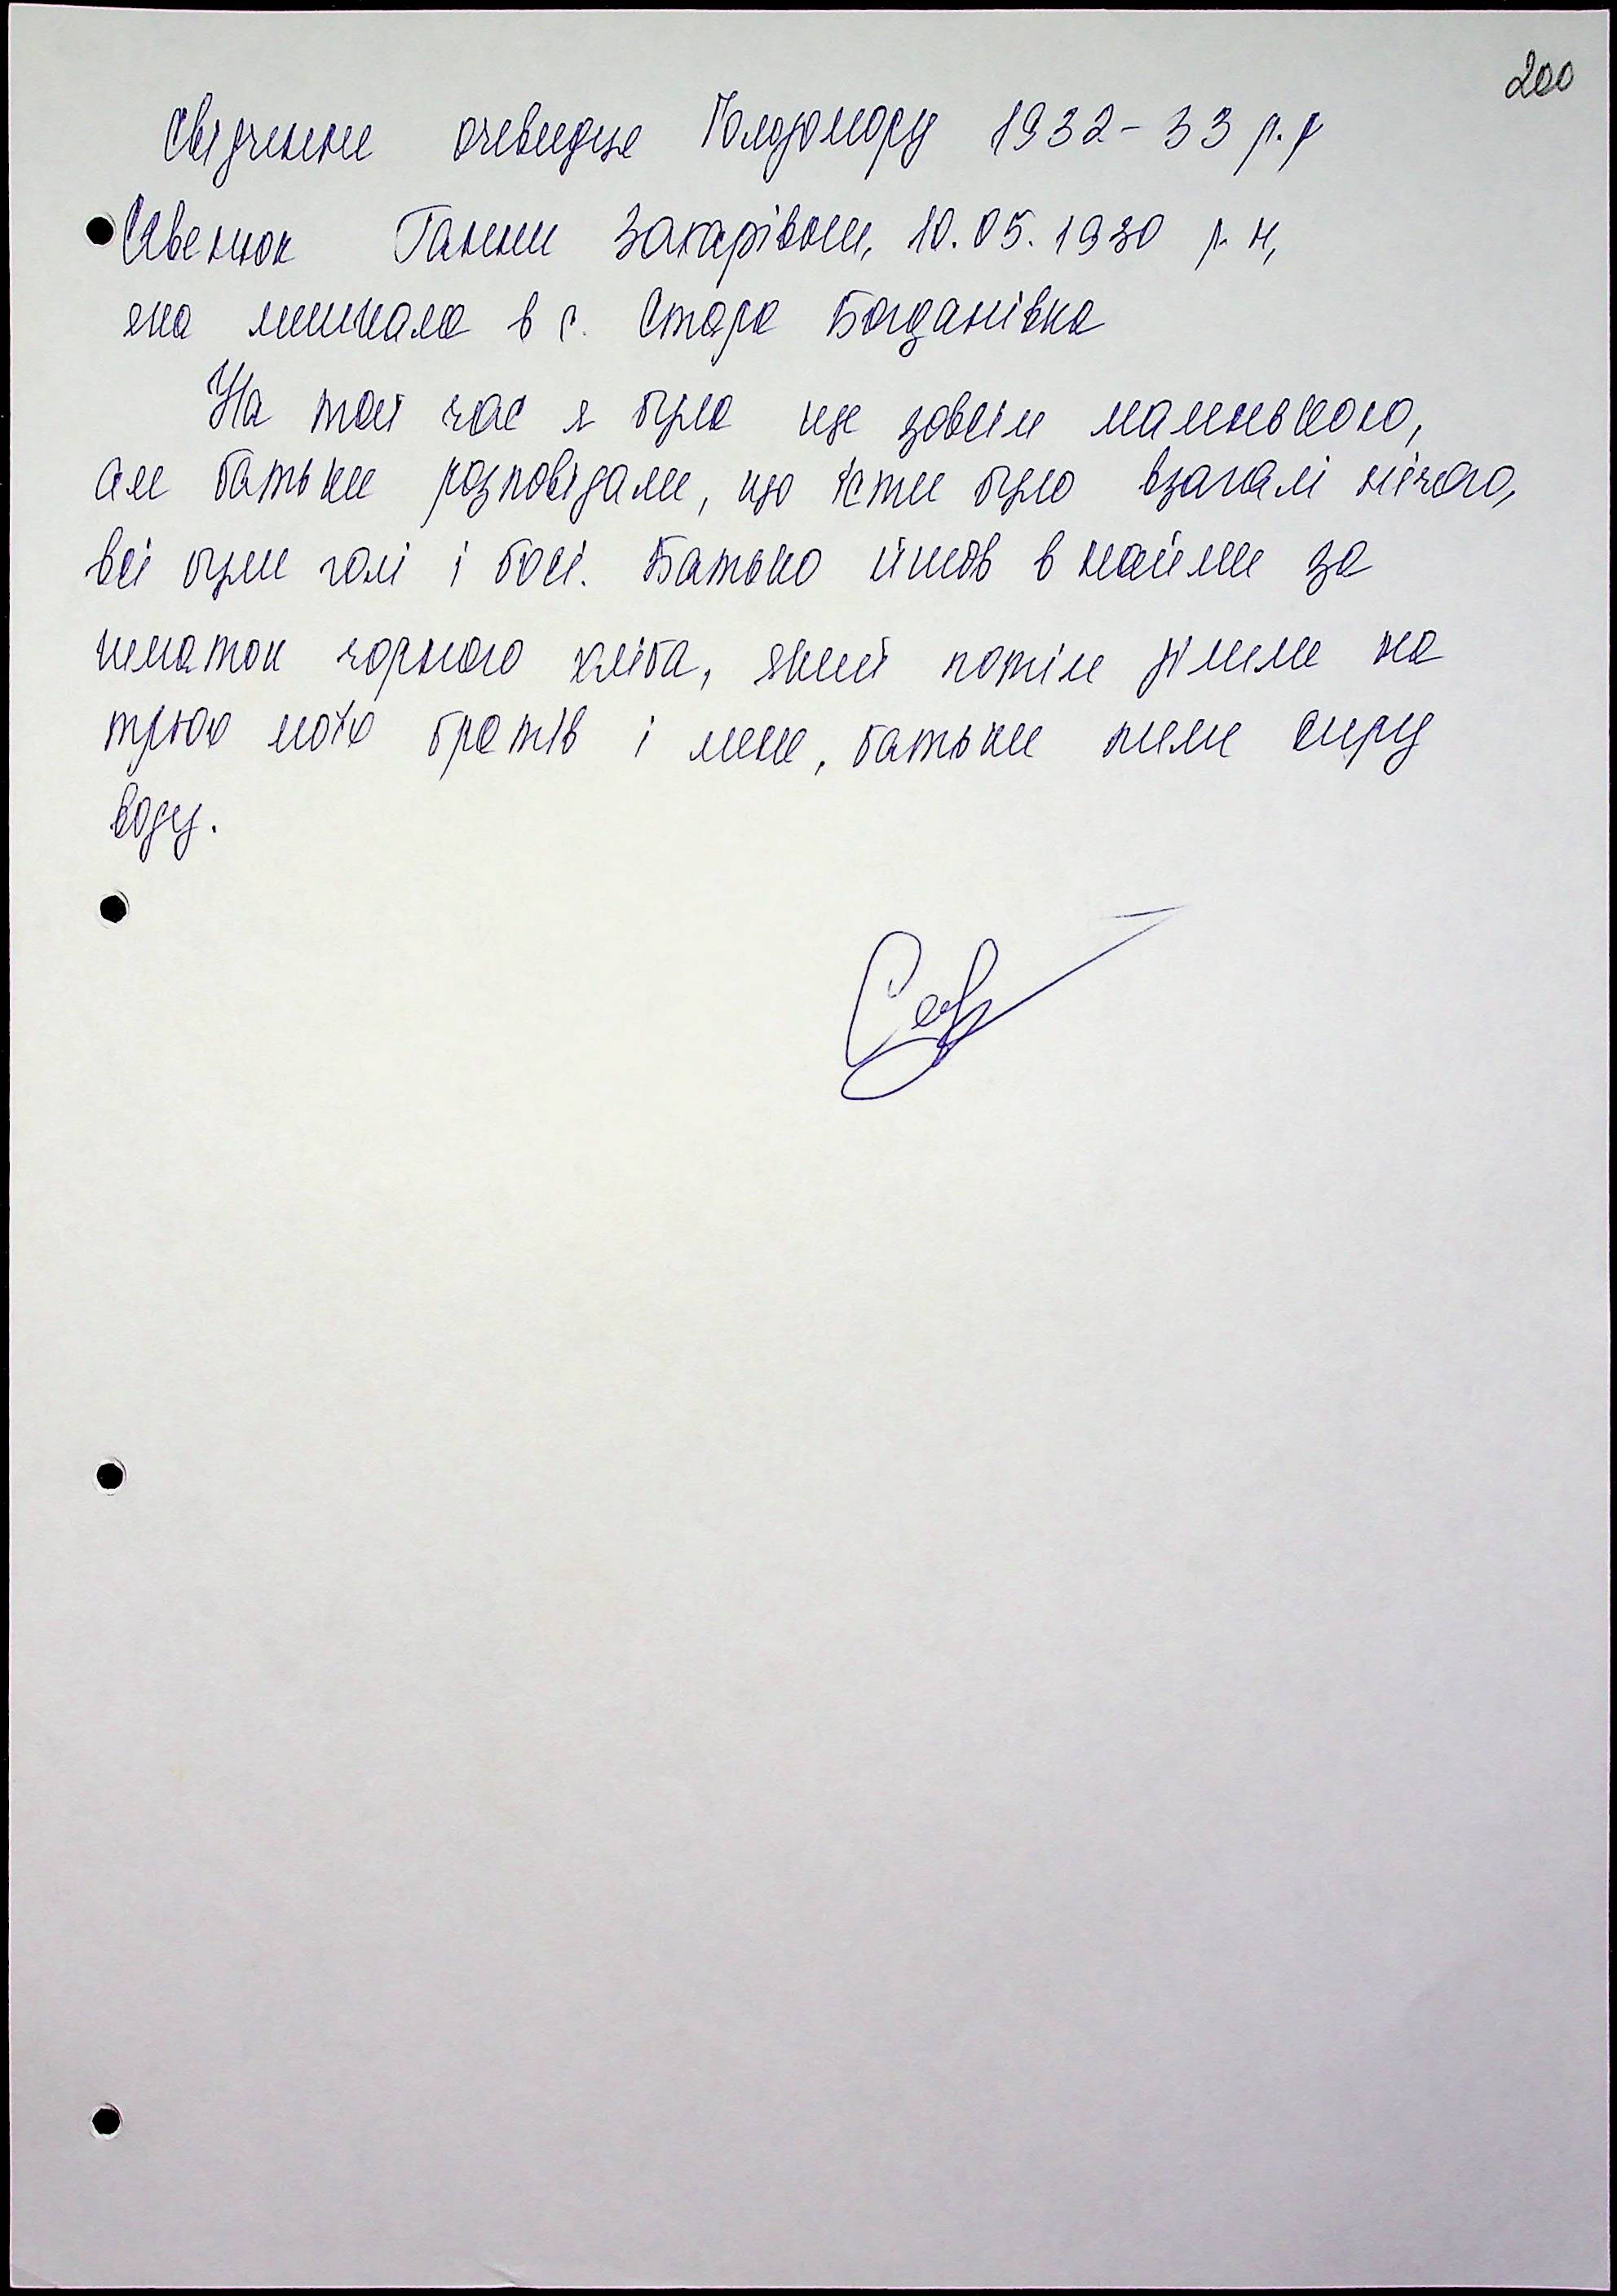 200
Свідчення очевидця Голодомору 1932-33 р.р
Ганни Захарівни, 10.05.1930 р.н,
яка мешкала в с. Стара Богданівка
На той час я була ще зовсім маленькою,
але батьки розповідали, що їсти було взагалі нічого,
всі були голі і босі. Батько йшов в найми за
шматок чорного хліба, який потім ділили на
трьох моїх братів і мене, батьки пили сиру
воду.